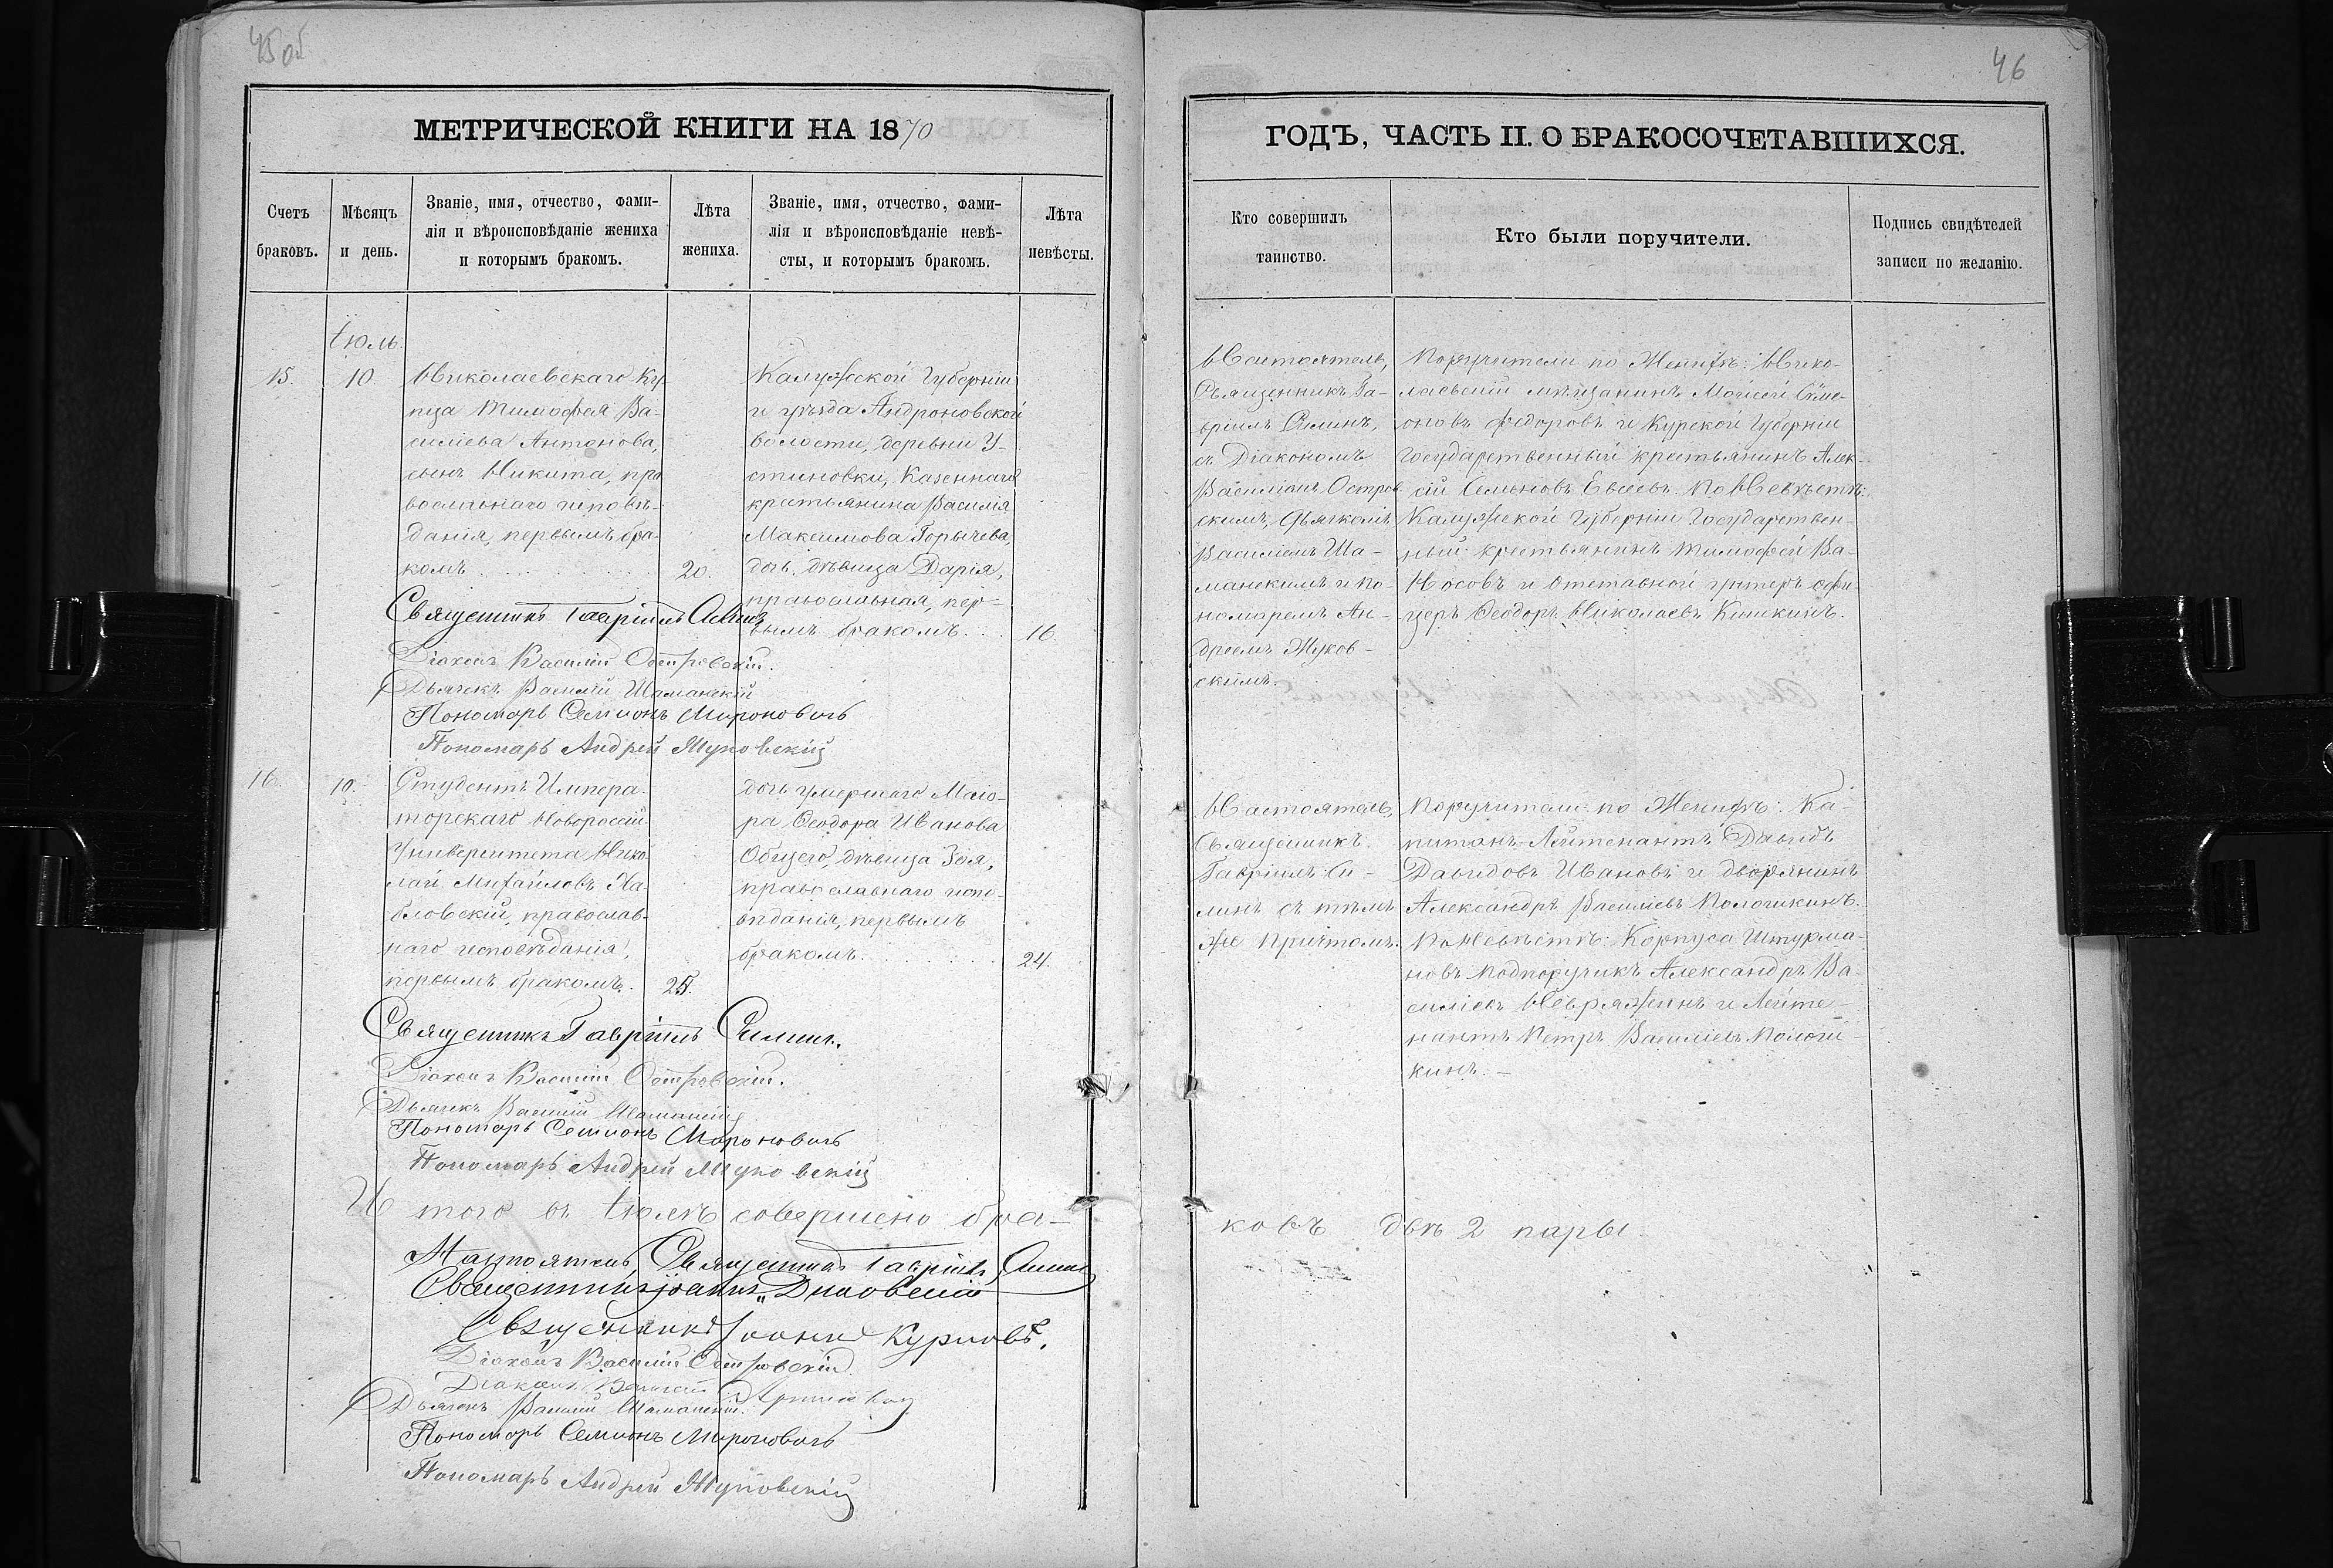 45 об
МЕТРИЧЕСКОЙ КНИГИ НА 1870
Счетъ браковъ.
Мѣсяцъ и день.
Званіе, имя, отчество, фами-
лія и вѣроисповѣданіе жениха
и которымъ бракомъ.
Лѣта жениха.
Званіе, имя, отчество, фами-
лія и вѣроисповѣданіе невѣ-
сты, и которымъ бракомъ.
Лѣта невѣсты.
Іюль.
15.
10.
Николаевскаго Ку-
пца Тимофея Ва-
силіева Антонова,
сынъ Никита, пра
вославнаго исповѣ-
данія, первымъ бра-
комъ
20.
Калужской Губерніи
и уѣзда Андроновской
волости, деревни У-
стиновки, Казеннаго
крестьянина Василія
Максимова Горычева,
дочь, дѣвица Дарія,
православная, пер-
вымъ бракомъ
16.
Священникъ Гавріилъ Силинъ
Діаконъ Василій Островскій.
Дьячекъ Василій Шаманскій
Пономарь Семионъ Мироновичъ
Пономарь Андрей Жуковскій
16.
10.
Студентъ Импера-
торскаго Новороссій-
Университета Нико
лай Михайловъ Ха-
бловскій, православ-
наго исповѣданія,
первымъ бракомъ.
25.
дочь умершаго Маіо-
ра Ѳеодора Иванова
Общего, дѣвица Зоя,
православнаго испо-
вѣданія, первымъ
бракомъ
24.
Священникъ Гавріилъ Силинъ.
Діаконъ Василій Островскій.
Дьячекъ Василій Шаманскій
Пономарь Семионъ Мироновичъ
Пономарь Андрей Жуковскій
И того въ Іюлѣ совершено бра-
Настоятель, Священникъ Гавріилъ Силинъ
Священникъ Іоаннъ
Священникъ Іоаннъ Курловъ.
Діаконъ Василій Островскій.
Діаконъ
Дьячекъ Василій Шаманскій.
Пономарь Семионъ Мироновичъ
Пономарь Андрей Жуковскій
46
ГОДЪ, ЧАСТЬ II. О БРАКОСОЧЕТАВШИХСЯ.
Кто совершилъ таинство.
Кто были поручители.
Подпись свидѣтелей записи по желанію.
Настоятель,
Священникъ Га-
вріилъ Силинъ,
съ Діакономъ
Василіемъ Остров
скимъ, Дьячкомъ
Василіемъ Ша-
манскимъ и по-
номаремъ Ан-
дреемъ Жуков-
скимъ.
Поручители по Женихѣ: Нико-
лаевскій мѣщанинъ Моисей Симе-
оновъ Федоровъ и Курской Губерніи
Государственный крестьянинъ Алек-
сій Семеновъ Евсеевъ. По Невѣстѣ:
Калужской Губерніи Государствен-
ный крестьянинъ Тимофей Ва-
Носовъ и Отставной унтеръ офи-
церъ Ѳеодоръ Николаевъ Кишкинъ.
Настоятель,
Священникъ
Гавріилъ Си-
линъ съ тѣмъ
же причтомъ.
Поручители по Женихѣ: Ка-
питанъ-Лейтенантъ Давидъ
Давидовъ Ивановъ и дворянинъ
Александръ Василіевъ Пологикинъ.
По Невѣстѣ: Корпуса Штурма-
новъ Подпоручикъ Александръ Ва-
силіевъ Невражинъ и Лейте-
нантъ Петръ Василіевъ Пологи-
кинъ. –
ковъ двѣ 2 пары.